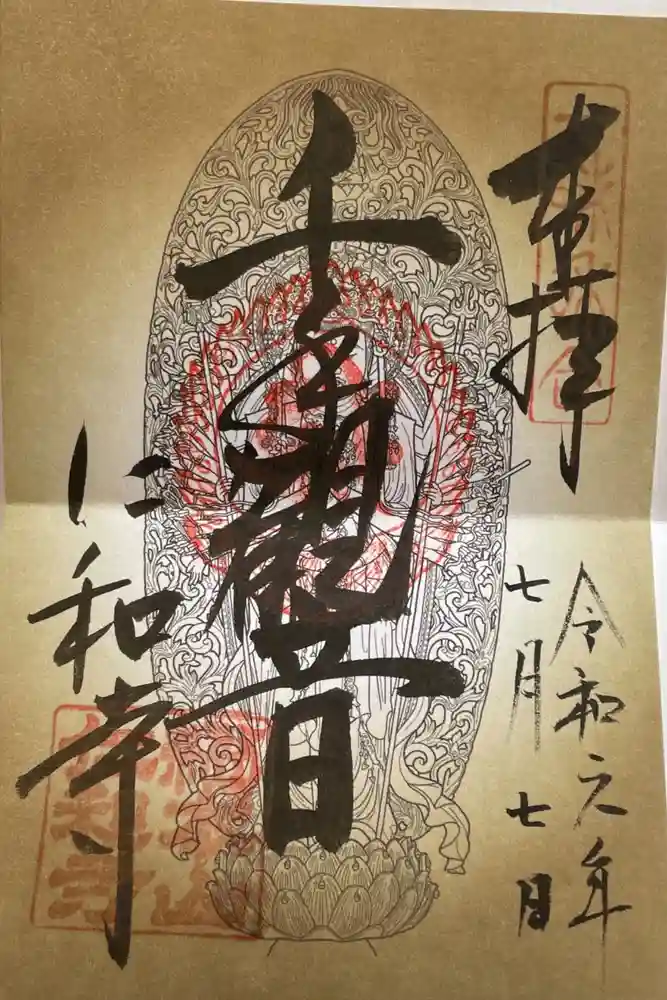 奉拝
令和元年
七月七日
千手観音
仁和寺